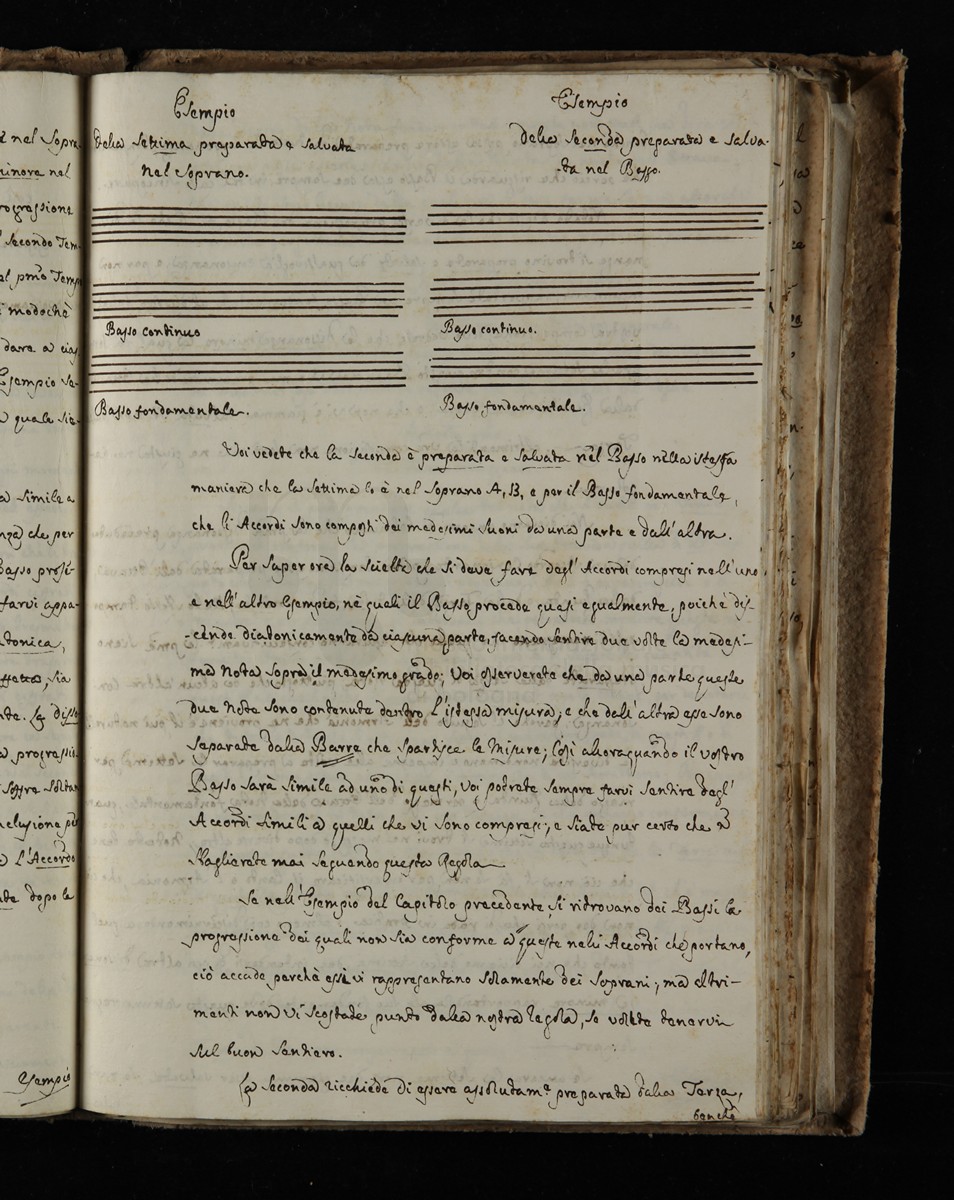 Esempio
della Settima preparata e salvata
nel Soprano.
Esempio
della Seconda preparata e salva-
-ta nel Basso.
Basso continuo
Basso continuo.
Basso fondamentale.
Basso fondamentale.
Voi vedete che la seconda è preparata e salvata nel Basso nella istessa
maniera che la settima lo è nel Soprano A, B, e per il Basso fondamentale,
che li Accordi sono composti dei medesimi suoni da una parte e dall'altra.
Per saper ora la scielta che si deve fare degl'Accordi compresi nell'uno,
e nell'altro Esempio, nè quali il Basso procede quasi egualmente, poichè dis-
-cende diatonicamente da ciascuna parte, facendo sentire due volte la medesi-
ma Nota sopra il medesimo grado; Voi osserverete che da una parte queste
due Note sono contenute dentro l'istessa misura; e che dall'altra esse sono
separate dalla Barra che spartisce le Misure; Così alloraquando il vostro
Basso sarà simile ad uno di questi, voi potrete sempre farvi sentire degl'
Accordi simili a quelli che vi sono compresi; e siate pur certo che
sbaglierete mai seguendo questa Regola
Se nell'Esempio del Capitolo precedente, si ritrovano dei Bassi la
progressione dei quali non sia conforme a queste neli Accordi che portano,
ciò accade perchè essi vi rappresentano solamente dei Soprani; ma altri-
menti non vi scostate punto dalla nostra regola, se volete tenervi
sul buon sentiero.
La seconda ricchiede di essere assolutam.e preparata dalla Terza,
benchè
nel Sopra
minore nel
rogressione
secondo Tem
al pmo Temp
modochè
dare a cias
Esempio se-
quale sia
simile a
che per
Basso prossi-
farvi appa-
tonica,
sia
La disso
progressi
soffre solta
L'Accordo
dopo la
Esempio